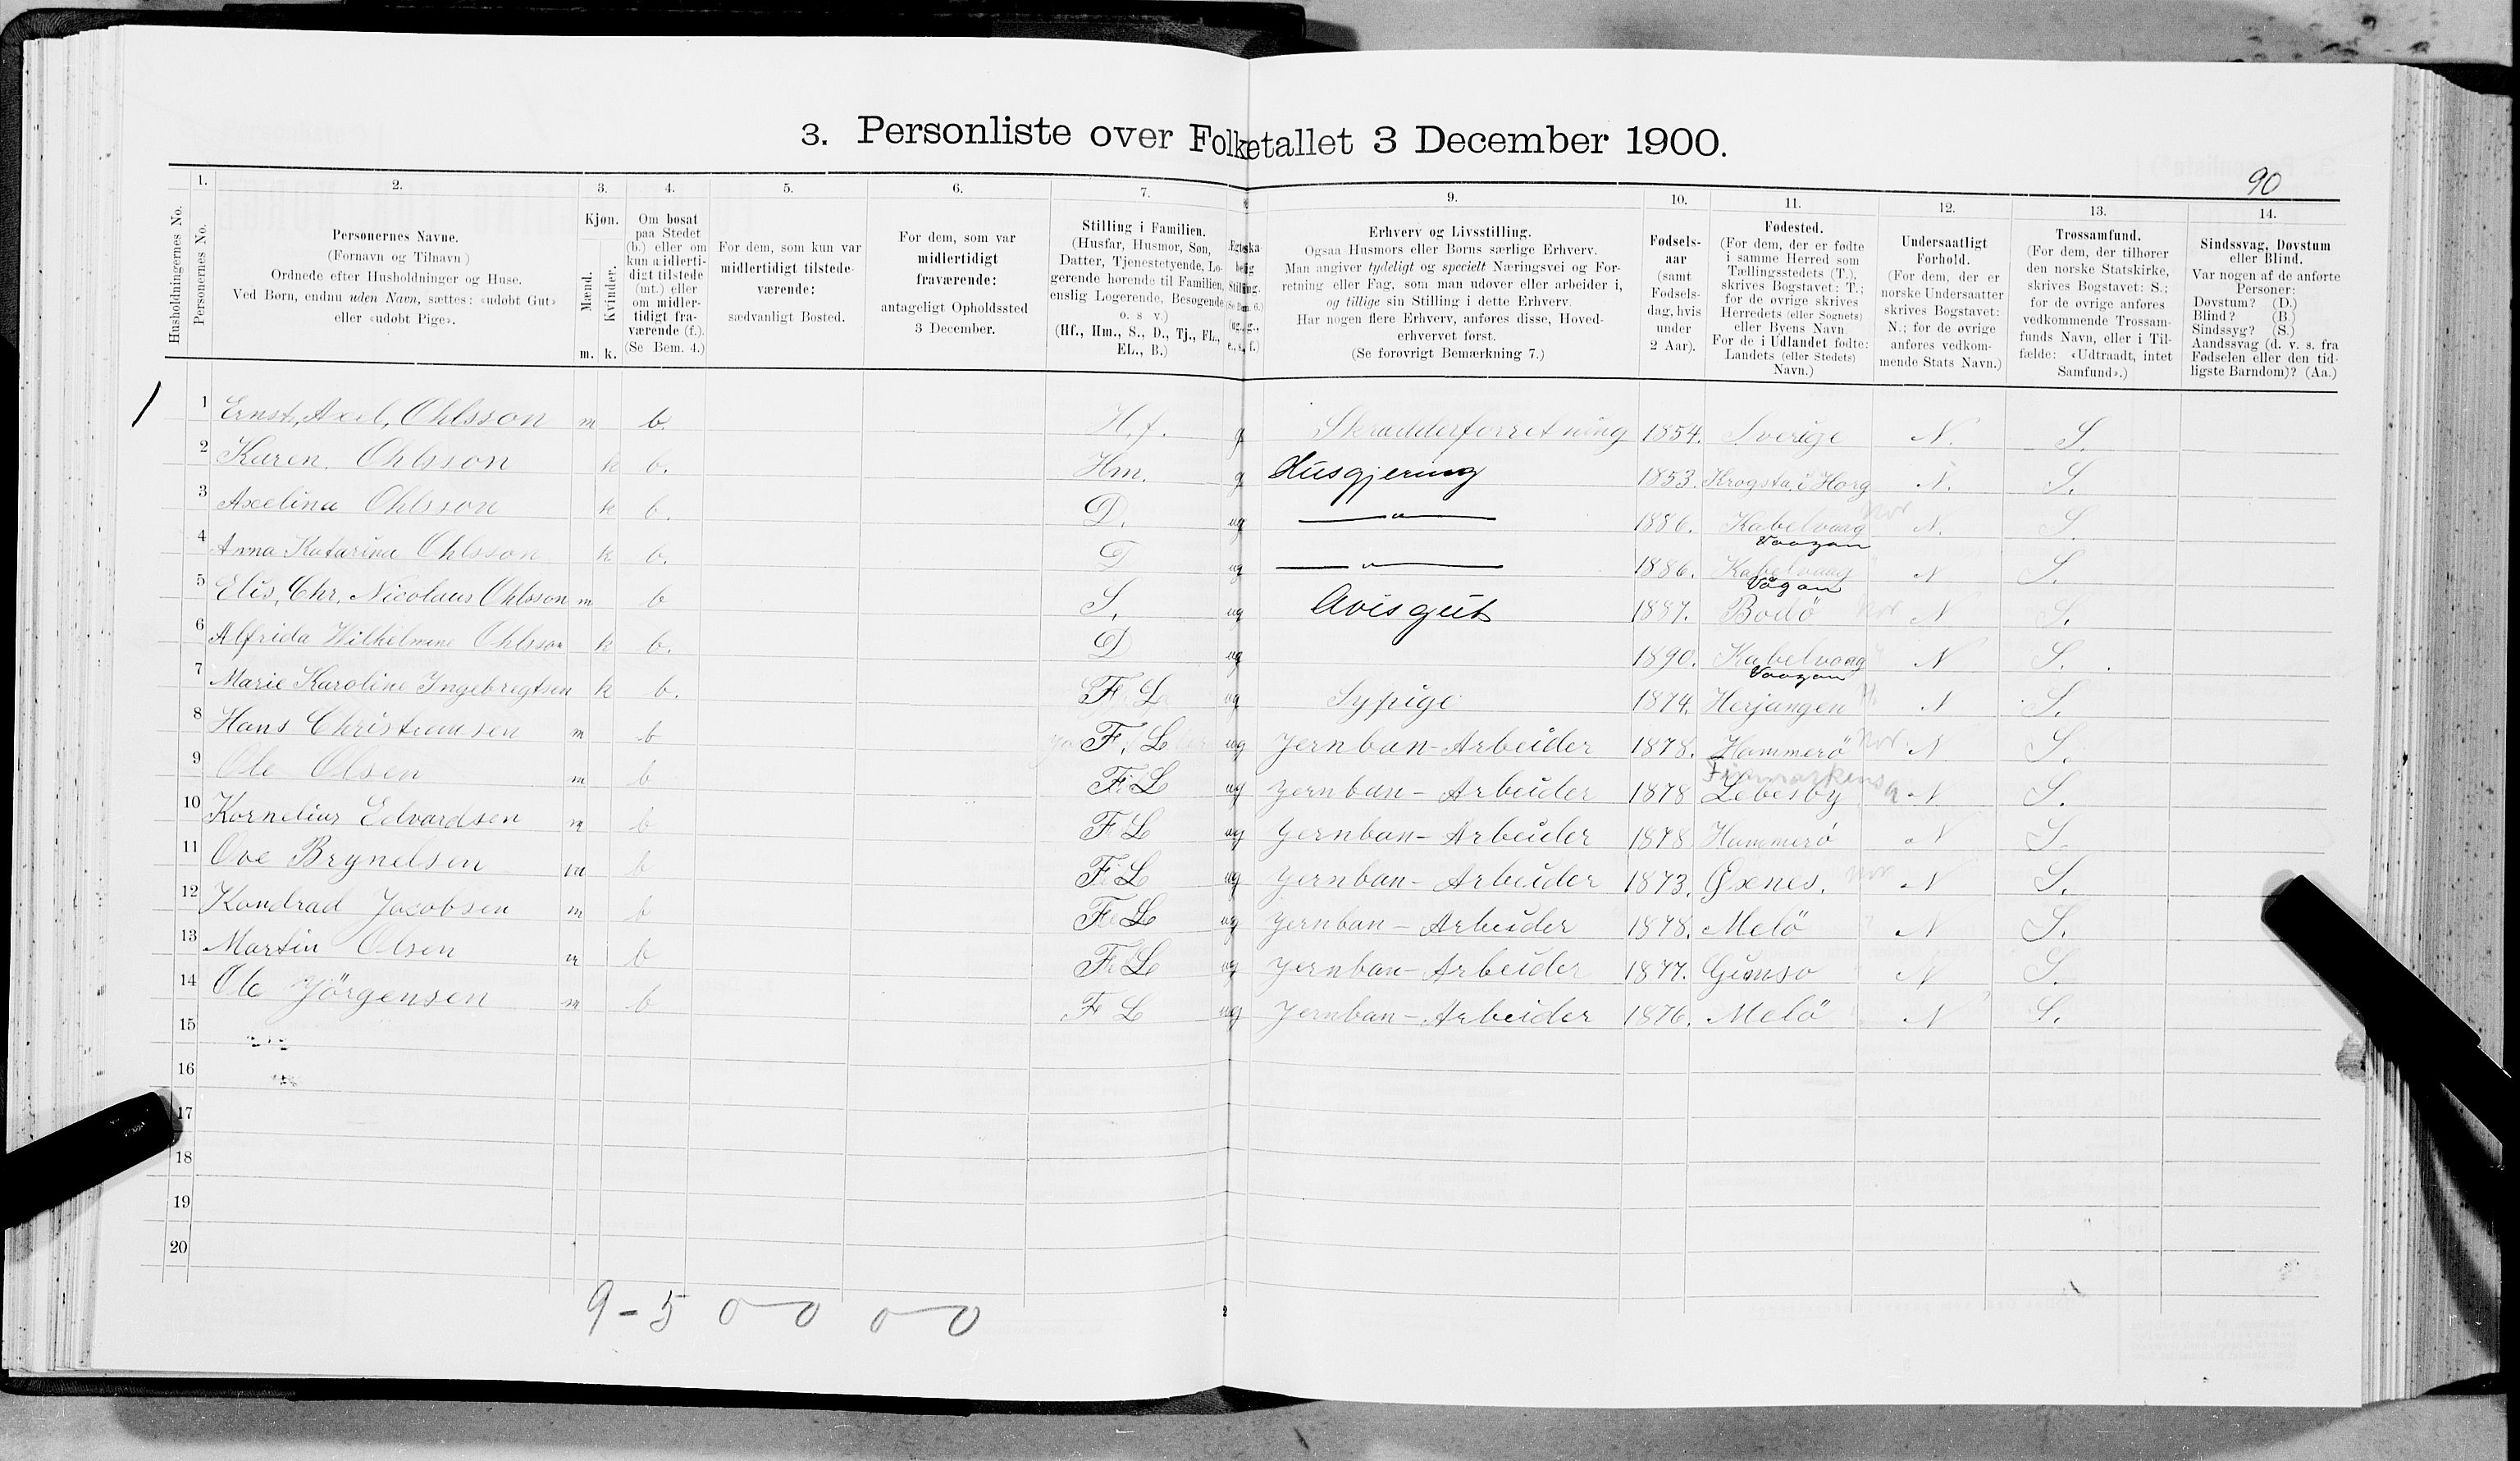 3. Personliste over Folketallet 3 December 1900.
90
Husholdningernes No.
1. Personernes No.
2. Personernes Navne.
(Fornavn og Tilnavn)
Ordnede efter Husholdninger og Huse.
Ved Børn, endnu uden Navn, sættes: «udøbt Gut»
eller «udøbt Pige».
3. Kjøn.
Mænd. Kvinder.
m. k.
4. Om bosat
paa Stedet
(b.) eller om
kun midlerti-
digt tilstede
(mt.) eller
om midler-
tidigt fra-
værende (f.).
(Se Bem. 4.)
5. For dem, som kun var
midlertidigt tilstede-
værende:
sædvanligt Bosted.
6. For dem, som var
midlertidigt
fraværende:
antageligt Opholdssted
3 December.
7. Stilling i Familien.
(Husfar, Husmor, Søn,
Datter, Tjenestetyende, Lo-
gerende hørende til Familien,
enslig Logerende, Besøgende
o. s. v.)
(Hf., Hm., S., D., Tj., FL.,
EL., B.)
Ægteska-
belig
Stilling.
(Se Bem. 6.)
(ug., g.,
e., s., f.)
9. Erhverv og Livsstilling.
Ogsaa Husmors eller Børns særlige Erhverv.
Man angiver tydeligt og specielt Næringsvei og For-
retning eller Fag, som man udøver eller arbeider i,
og tillige sin Stilling i dette Erhverv.
Har nogen flere Erhverv, anføres disse, Hoved-
erhvervet først.
(Se forøvrigt Bemærkning 7.)
10. Fødsels-
aar
(samt
Fødsels-
dag, hvis
under
2 Aar).
11. Fødested.
(For dem, der er fødte
i samme Herred som
Tællingsstedets (T.),
skrives Bogstavet: T.;
for de øvrige skrives
Herredets (eller Sognets)
eller Byens Navn
For de i Udlandet fødte:
Landets (eller Stedets)
Navn.)
12. Undersaatligt
Forhold.
(For dem, der er
norske Undersaatter
skrives Bogstavet:
N.; for de øvrige
anføres vedkom-
mende Stats Navn.)
13. Trossamfund.
(For dem, der tilhører
den norske Statskirke,
skrives Bogstavet: S.;
for de øvrige anføres
vedkommende Trossam-
funds Navn, eller i Til-
fælde: «Udtraadt, intet
Samfund».)
14. Sindssvag, Døvstum
eller Blind.
Var nogen af de anførte
Personer:
Døvstum? (D.)
Blind? (B.)
Sindssyg? (S.)
Aandssvag (d. v. s. fra
Fødselen eller den tid-
ligste Barndom)? (Aa.)
1 1 Ernst, Axel, Ohlsson m b. H.f. g Skrædderforretning 1854. Sverige N. S.
2 Karen. Ohlsson k b. Hm. g Husgjerning 1853. Krogsta i Horg N. S.
3 Axelina Ohlsson k b. D. ug —"— 1886. Kabelvaag Nor N. S.
Vaagan
4 Anna Katarina Ohlsson k b. D ug —"— 1886. Kabelvaag N S.
Vågan
5 Elis, Chr. Nicolaus Ohlsson m b S. ug Avisgut 1887. Bodö Nor N S.
6 Alfrida Wilhelmine Ohlsson k b. D ug 1890. Kabelvaag N S.
Vaagan
7 Marie Karoline Ingebregtsen k b. F. L ug Sypige 1874. Herjangen N S.
8 Hans Christiansen m b F. L ug Jernban-Arbeider 1878. Hammerö Nor N S.
Finmarkens
9 Ole Olsen m b F L ug Jernban-Arbeider 1878 Lebesby N S.
10 Kornelius Edvardsen m b F L ug Jernban-Arbeider 1878 Hammerö N S.
11 Ove Brynelsen m b F L ug Jernban-Arbeider 1873. Öxnes. Nor N S.
12 Kondrad Jacobsen m b F L ug Jernban-Arbeider 1878. Melö N S.
13 Martin Olsen m b F L ug Jernban-Arbeider 1877. Gimsö N S.
14 Ole Jörgensen m b F L ug Jernban-Arbeider 1876. Melö N S.
15
16
17
18
19
20
9 - 5 0—0 0—0
2